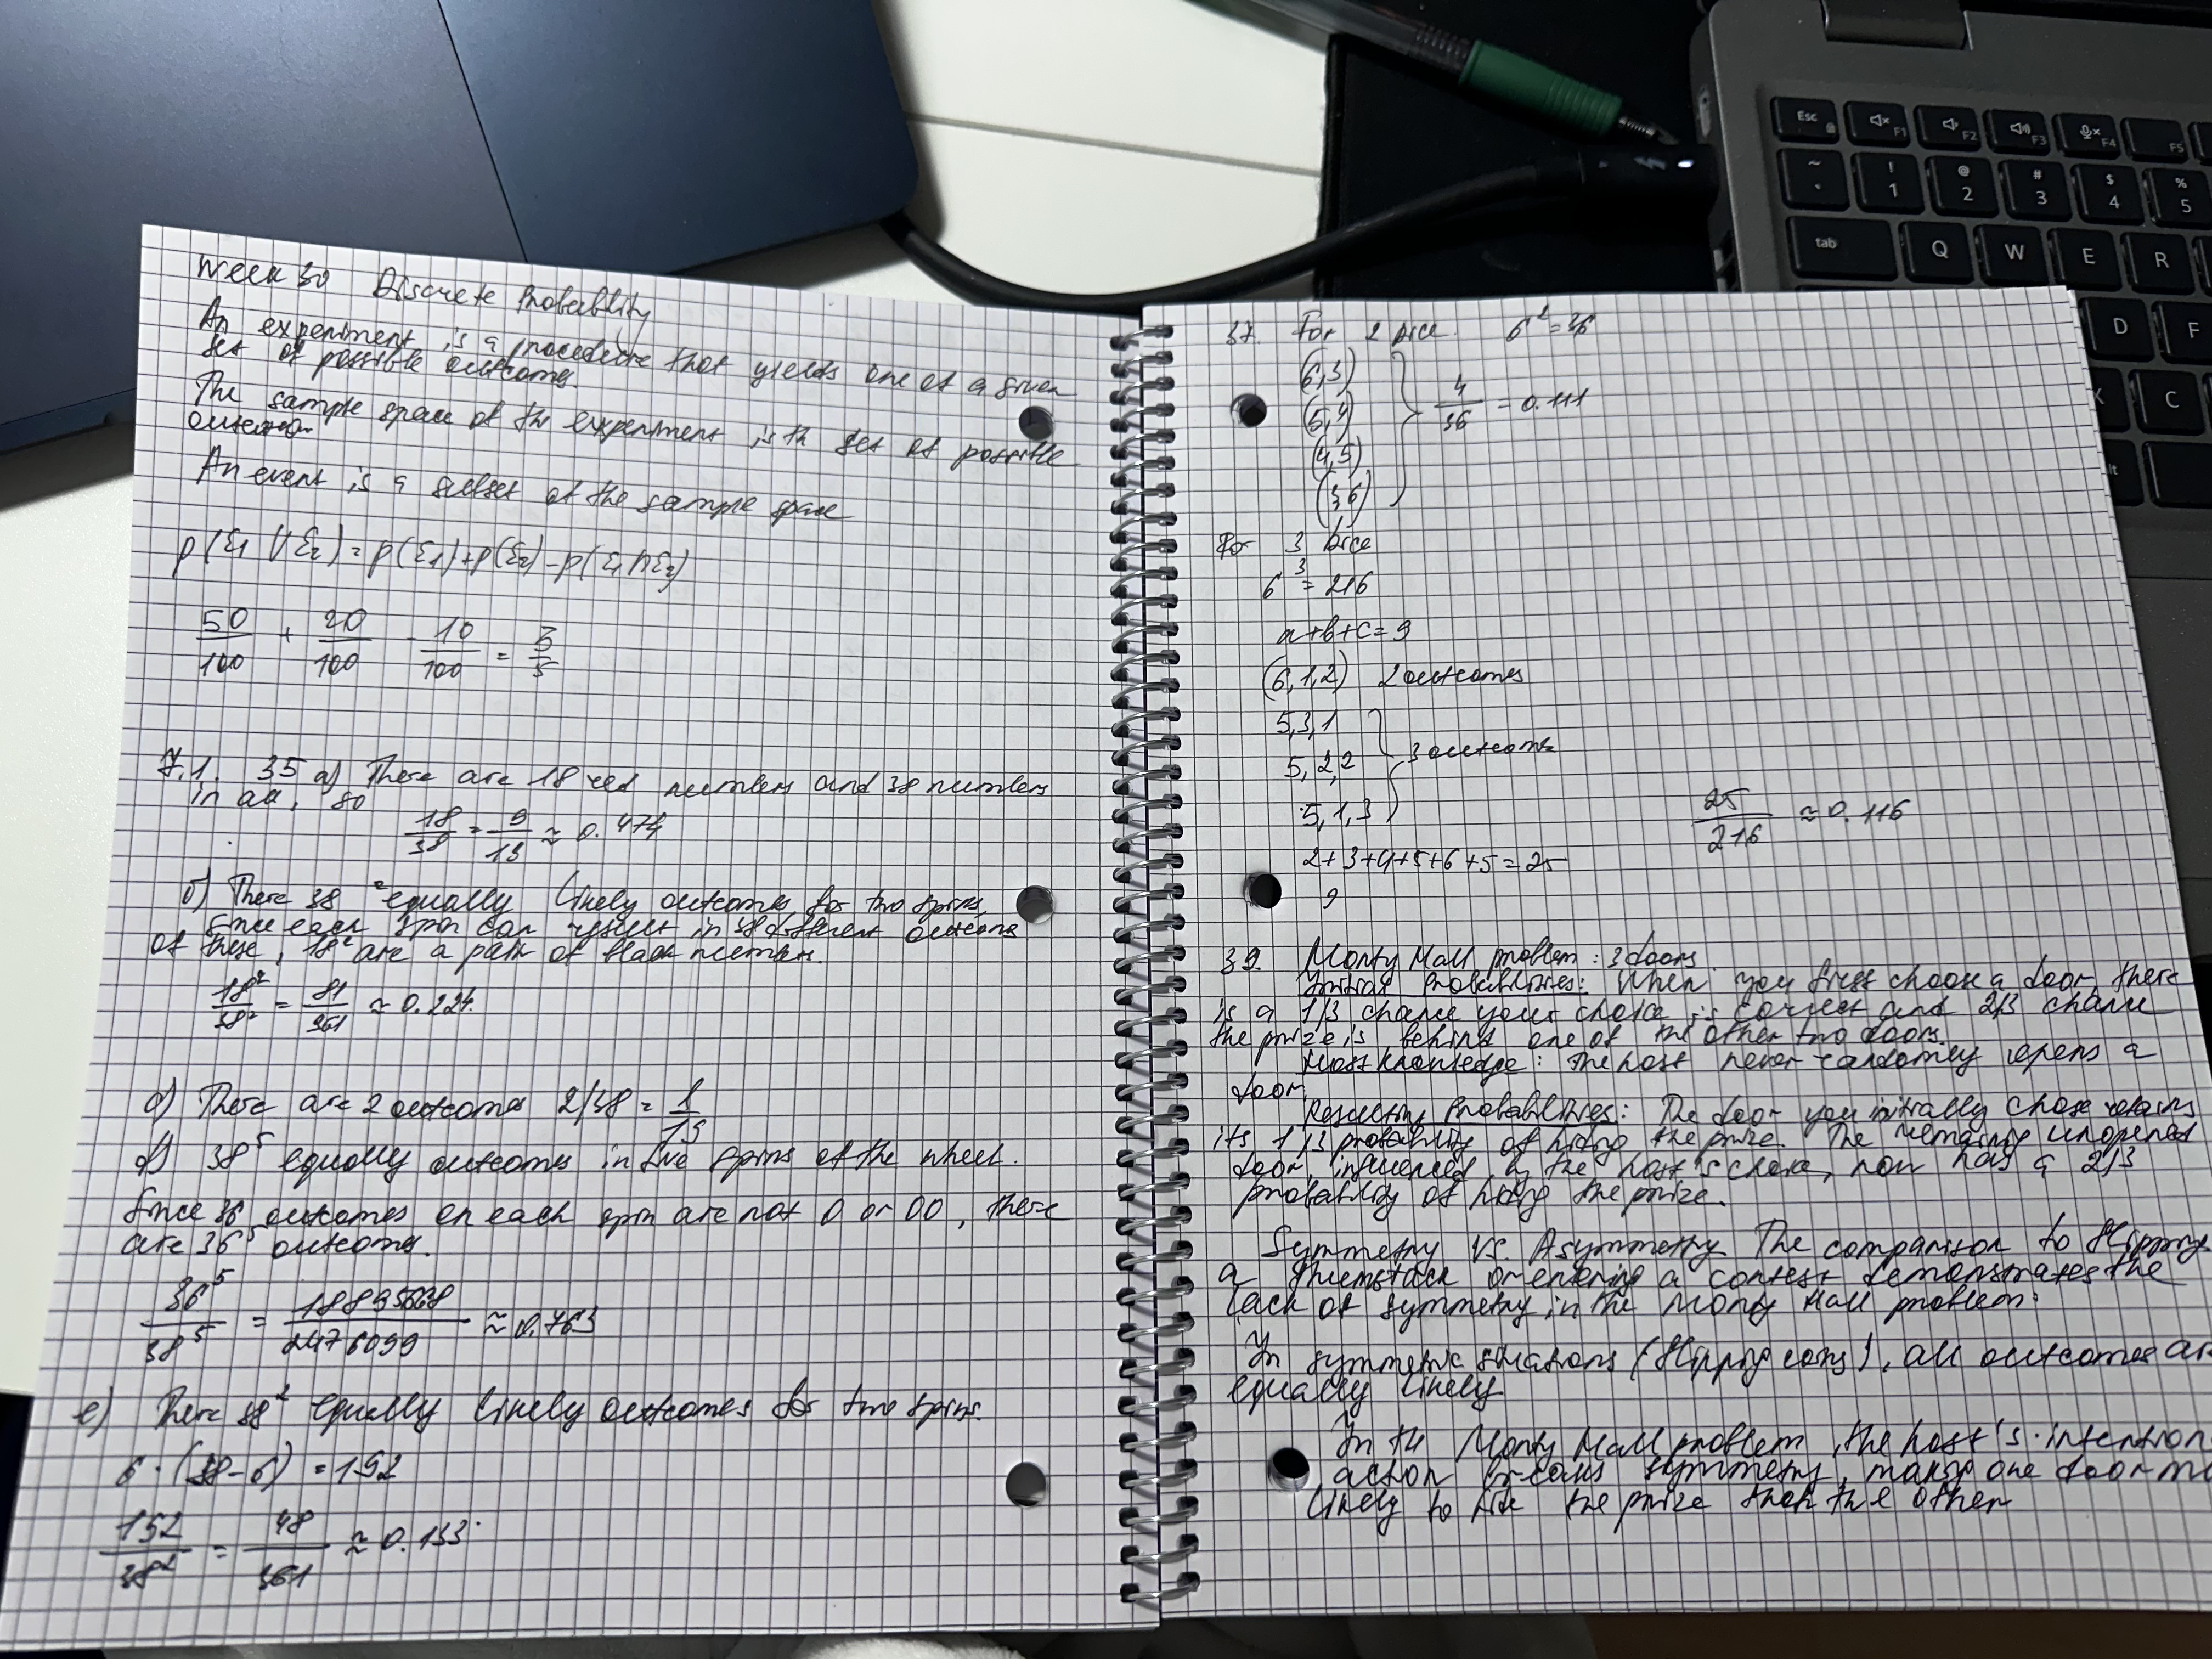 Week 30 Discrete Probability
An experiment is a procedure that yields one of a given
set of possible outcomes.
The sample space of the experiment is th set of possible
outcomes
An event is a subset of the sample space
p(ε1 U ε2) = p(ε1)+p(ε2)-p(ε1∩ε2)
50/100 + 20/100 - 10/100 = 3/5
7.1. 35 a) There are 18 red numbers and 38 numbers
in all, so
18/38 = 9/19 ≈ 0.474
б) There 38² equally likely outcomes for two spins,
since each spin can result in 38 different outcoms
of these, 18² are a pair of black numbers.
18²/38² = 81/361 ≈ 0.224.
There are 2 outcomes 2/38 = 1/19
d) 38⁵ equally outcomes in five spins of the wheel.
Since 36 outcomes on each spin are not 0 or 00, there
are 36⁵ outcoms.
36⁵/38⁵ = /2476099 ≈ 0.763
e) There 38² equally likely outcomes for two spins.
6·(38-6) = 192
192/38² = 48/361 ≈ 0.133
37. For 2 Dice 6² = 36
(6,3)
(5,4)
(4,5)
(3,6)
4/36 = 0.111
For 3 Dice
6³ = 216
a+b+c=9
(6,1,2) 2 outcomes
5,3,1
5,2,2
5,1,3
3 outcoms
25/216 ≈ 0.116
2+3+4+5+6+5=25
9
39. Monty Hall problem: 3 doors.
Initial Probabilities: When you first choose a door, there
is a 1/3 chance your choice is correct and 2/3 chance
the prize is behind one of the other two doors.
Host knowledge: The host never randomly opens a
door.
Resulting Probabilities: The door you initially chose retains
its 1/3 probability of hiding the prize. The remaining unopened
door, influenced by the host's choice, now has a 2/3
probability of hiding the prize.
Symmetry vs. Asymmetry The comparison to flipping
a or entering a contest demonstrates the
lack of symmetry in the Monty Hall problem:
In symmetric situations (flipping coins), all outcomes ar
equally likely.
In th Monty Hall problem, the host's intention
action breaks symmetry, making one door mo
likely to hide the prize than the other
Esc
F1
F2
F3
F4
F5
~
!
1
@
2
#
3
$
4
%
5
tab
Q
W
E
R
D
F
X
C
lt